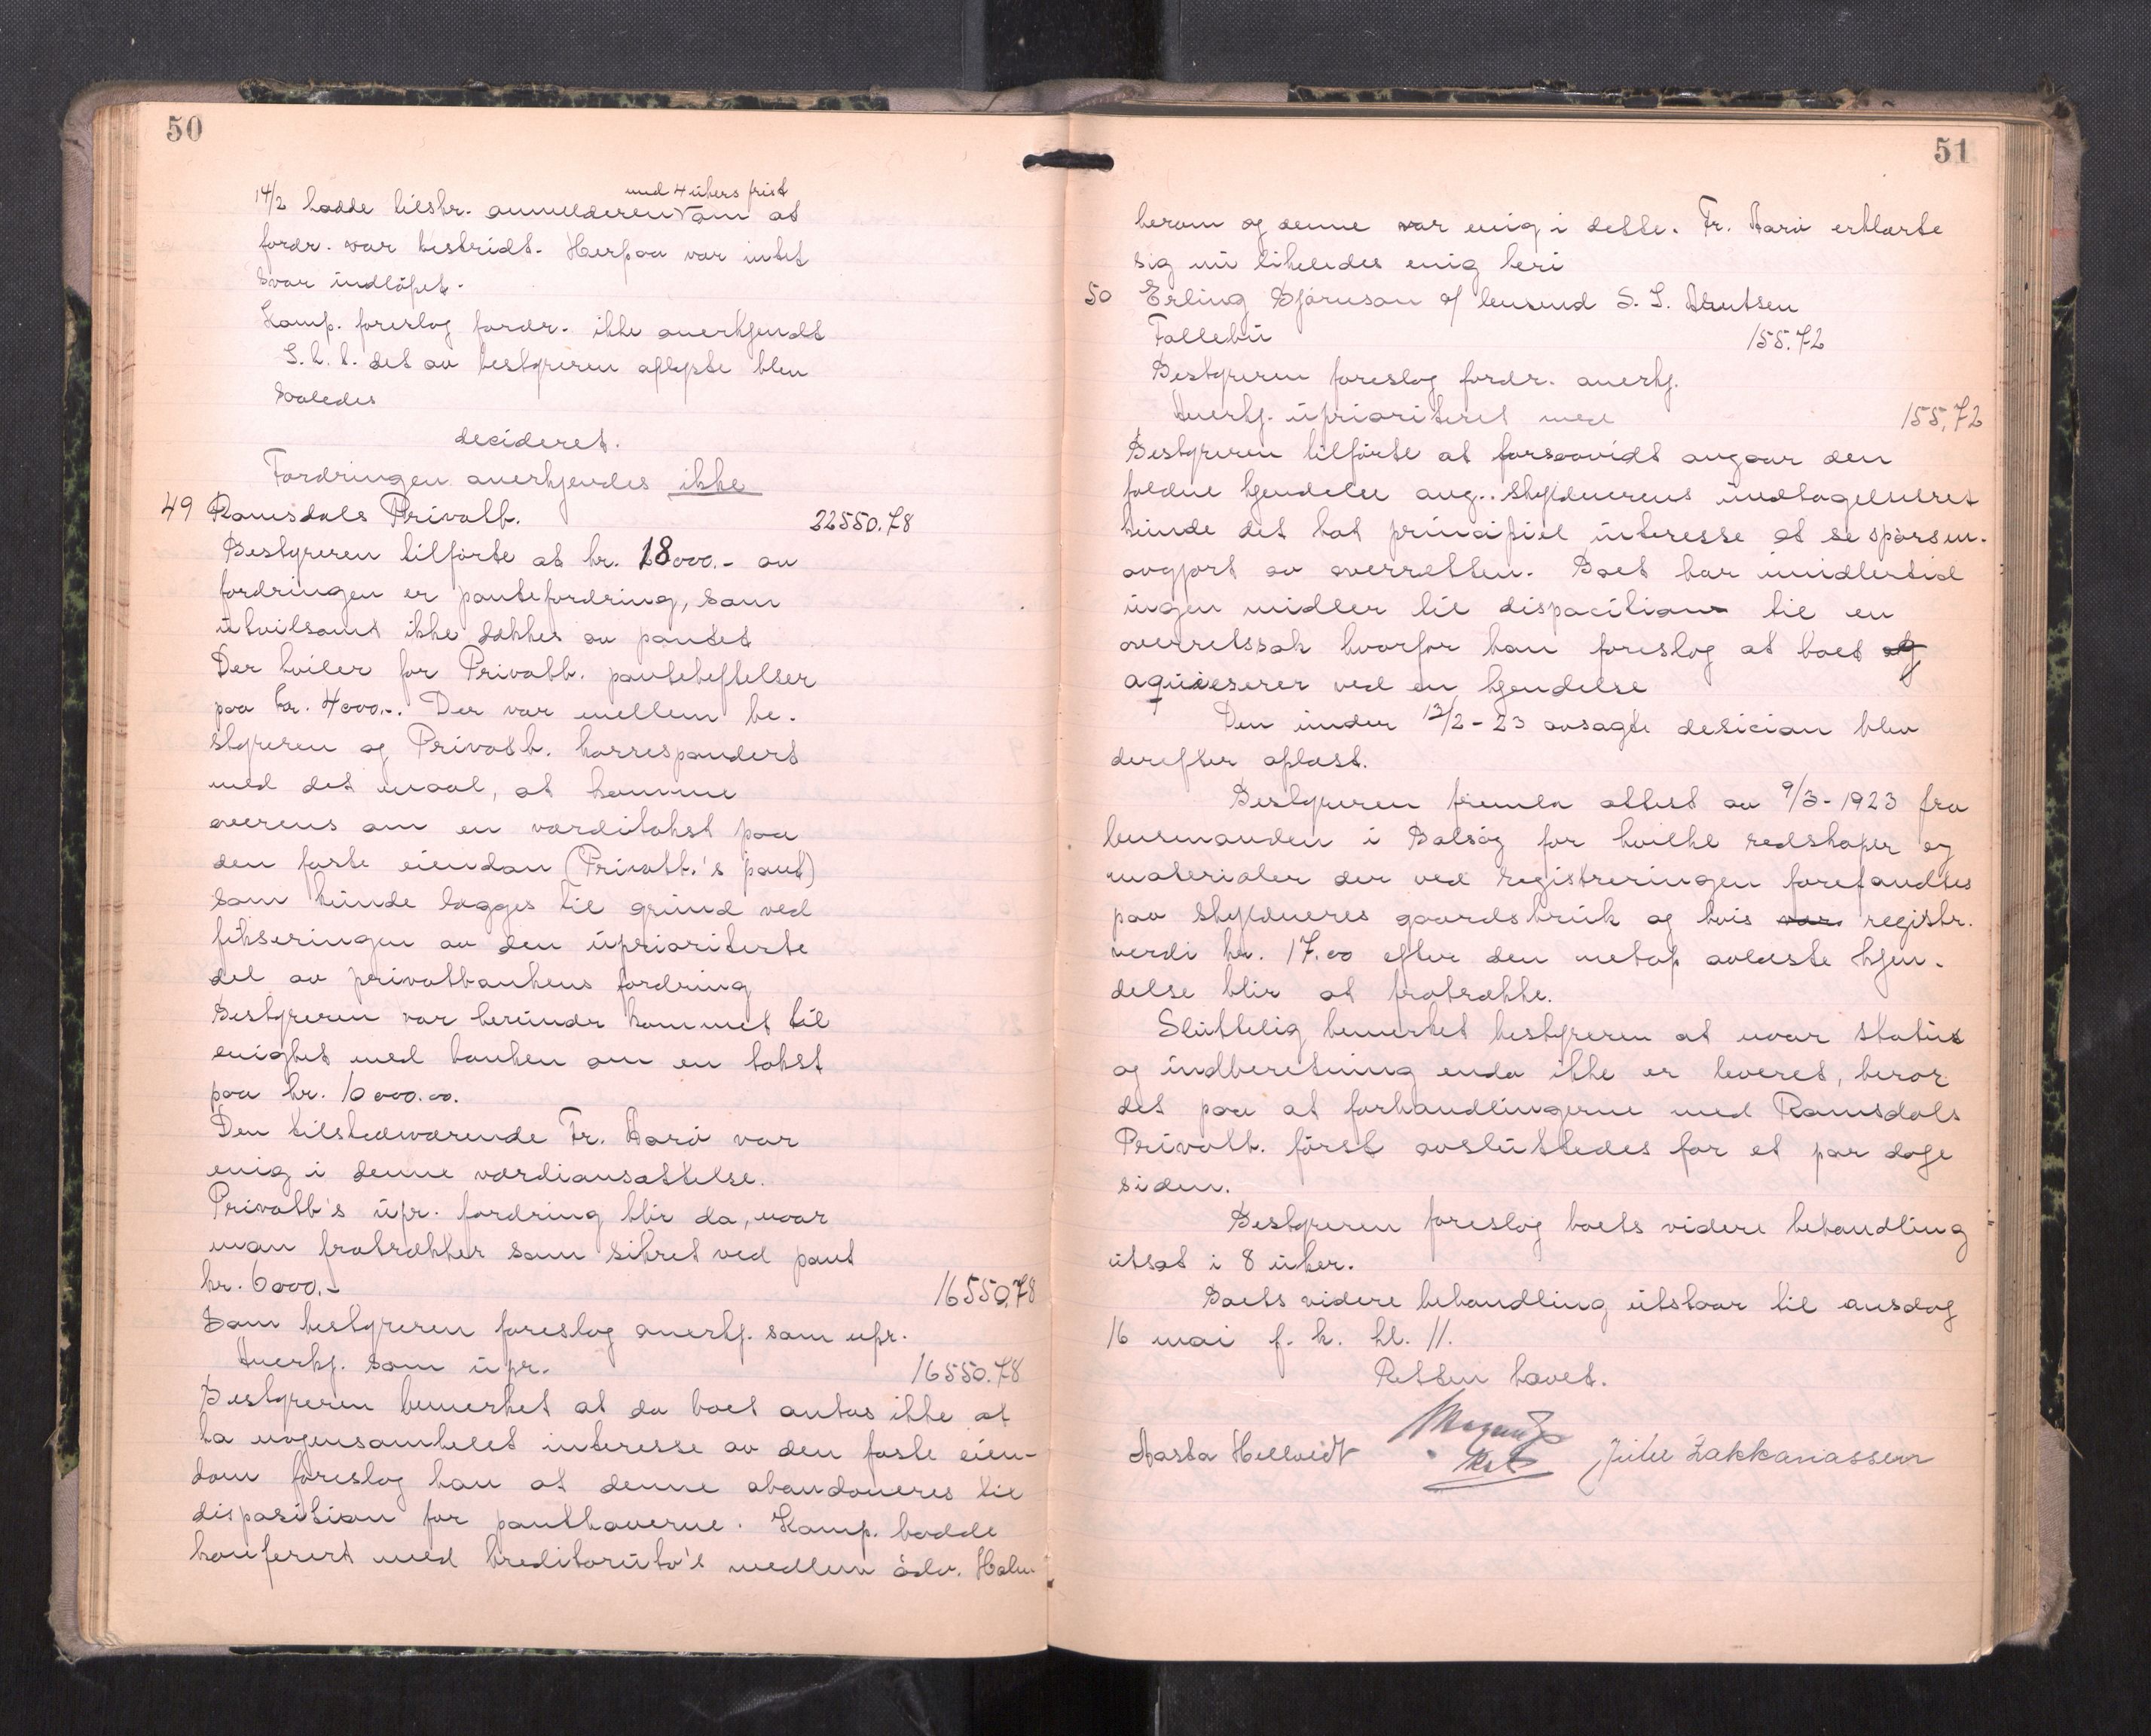 50
14/2 hadde tilskr. anmelderen med 4 ukers frist om at
fordr. var bestridt. Herpaa var intet
svar indløpet.
Komp. foreslog fordr. ikke anerkjendt
S. k. l. det av bestyreren oplyste blev
saaledes
decideret.
Fordringen anerkjendes ikke
49 Romsdals Privatb. 22550.78
Bestyreren tilførte at kr. 18000.- av
fordringen er pantefordring, som
utvilsomt ikke dækkes av pantet
Der hviler for Privatb. panteheftelser
paa kr. 4000.-. Der var mellem be-
styreren og Privatb. korrespondert
med det maal, at komme
overens om en værditakst paa
den faste eiendom (Privatb.'s pant)
som kunde lægges til grund ved
fikseringen av den upriorterte
del av privatbankens fordring
Bestyreren var herunder kommet til
enighet med banken om en takst
paa kr. 10000.00.
Den tilstedeværende Fr. Aarø var
enig i denne værdiansættelse.
Privatb's upr. fordring blir da, naar
man fratrækker som sikret ved pant
kr. 6000.- 16550.78
Som bestyreren foreslog anerkj. som upr.
Anerkj. som upr. 16550.78
Bestyreren bemerket at da boet antas ikke at
ha nogensomhelst interesse av den faste eien-
dom foreslog han at denne abandoneres til
disposition for panthaverne. Komp. hadde
konferert med kreditorutv's medlem adv. Holm-
51
herom og denne var enig i dette. Fr. Aarø erklærte
sig nu likeledes enig heri
50 Erling Bjørnson v/ lensmd S. L. Knutsen
Follebu 155.72
Bestyreren foreslog fordr. anerkj.
Anerkj. uprioriteret med 155.72
Bestyreren tilførte at forsaavidt angaar den
faldne kjendelse ang.. skyldnerens undtagelsesret
kunde det hat principiel interesse at se spørsm.
avgjort av overretten. Boet har imidlertid
ingen midler til disposition til en
overretssak hvorfor han foreslog at boet og
aquieserer ved en kjendelse
Den under 13/2-23 avsagte desicion blev
derefter oplæst.
Bestyreren fremla attest av 9/3-1923 fra
lensmanden i Bolsøy for hvilke redskaper og
materialer der ved registreringen forefandtes
paa skyldneres gaardsbruk og hvis var registr.
verdi kr. 17.00 efter den netop avlæste kjen-
delse blir at fratrække.
Sluttelig bemerket bestyreren at naar status
og indberetning enda ikke er leveret, beror
det paa at forhandlingerne med Romsdals
Privatb. først avsluttedes for et par dage
siden.
Bestyreren foreslog boets videre behandling
utsat i 8 uker.
Boets videre behandling utstaar til onsdag
16 mai f. k. kl. 11.
Retten hævet.
Aasta Hellvidt Julie Zakkariassen